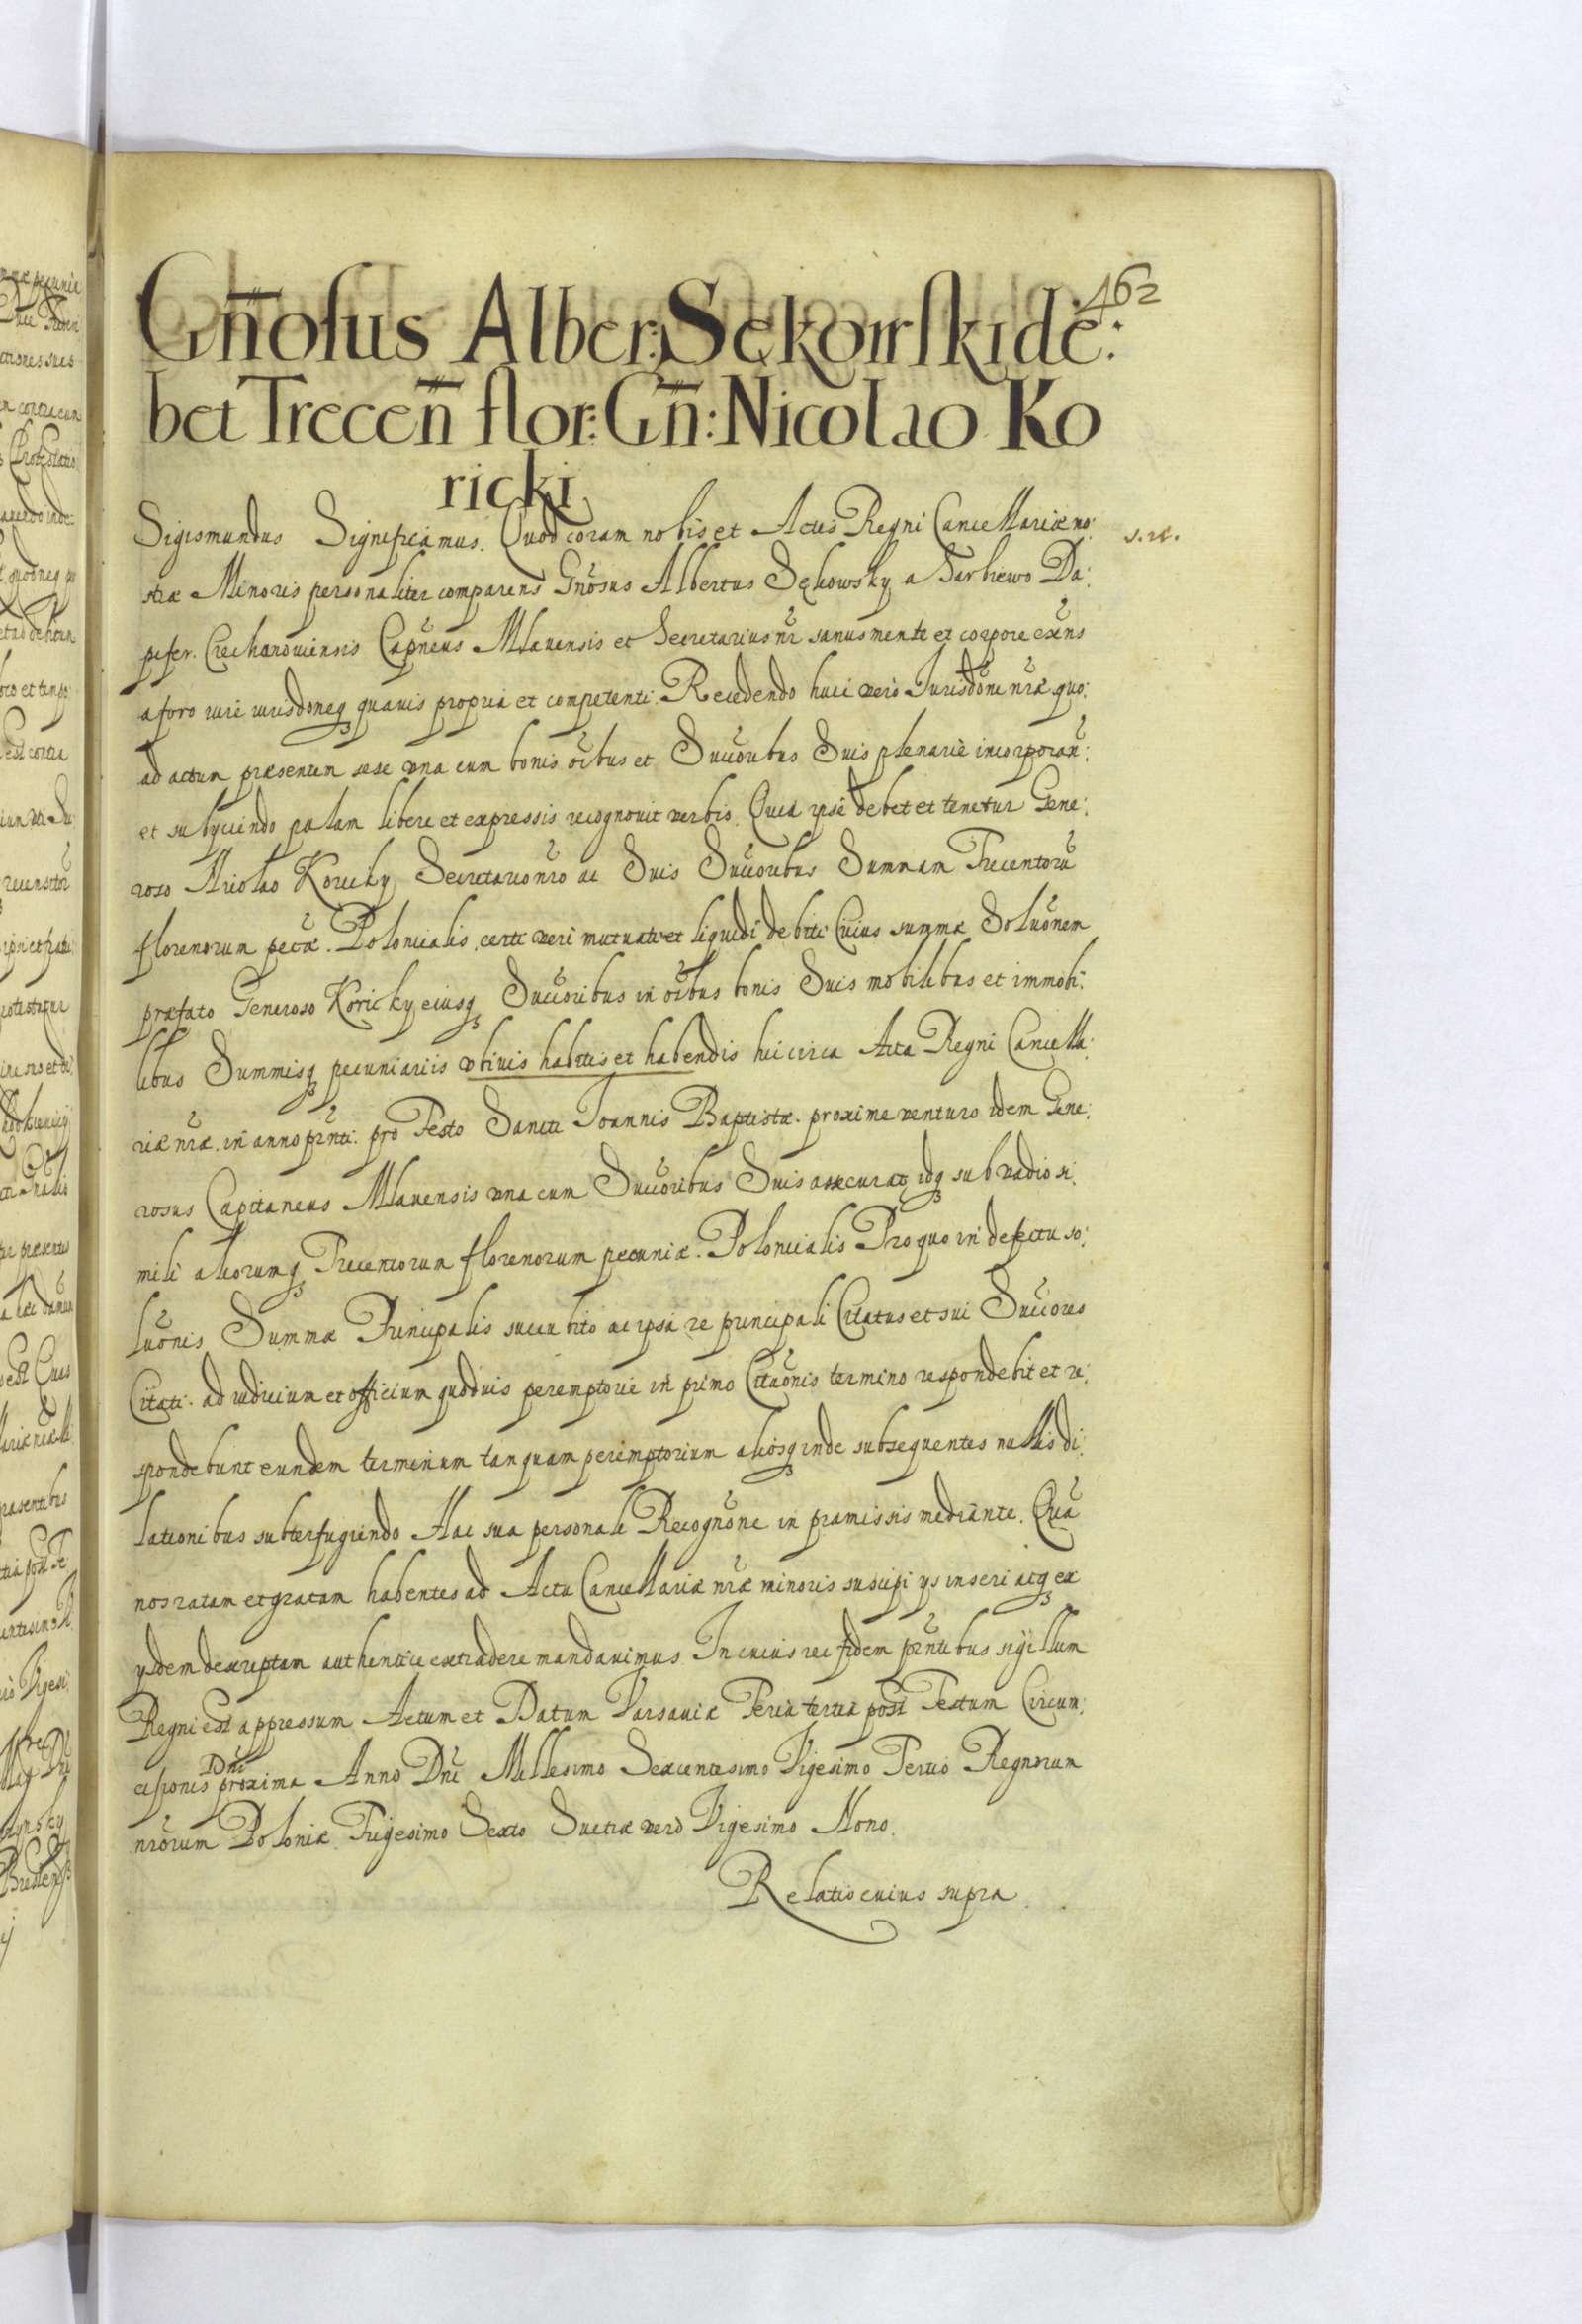 462
Gn̄osus Alber: Sękowski de:
bet Trecen̄ flor: Gn̄: Nicolao Ko
ricki
Sigismundus Significamus. Quod coram nobis et Actis Regni Cancellariæ no:
stræ Minoris personaliter comparens Gnosus Albertus Sękowsky a Sarbiewo Da:
pifer. Ciechanouiensis Capneus Mlauensis et Secretarius nr sanus mente et corpore exns
a foro iure iurisdoneq quauis propria et competenti. Recedendo huic vero Jurisdoni nræ quo:
ad actum præsentem sese vna cum bonis oibus et Succoribus Suis plenarie incorporan:
et subyciendo palam libere et expressis recognouit verbis. Quia ipse debet et tenetur Gene:
roso Nicolao Koricky Secretario nro ac Suis Succoribus Summam Trecentoru
florenorum pecæ. Polonicalis, certi veri mutuati et liquidi debiti Cuius summæ Soluonem
præfato Generoso Koricky eiusq Succoribus in oibus bonis Suis mobilibus et immobi:
libus Summisq pecuniariis vbiuis habitis et habendis hic circa Acta Regni Cancella:
riæ nræ. in anno pnti. pro Festo Sancti Joannis Baptistæ. proxime venturo idem Gene:
rosus Capitaneus Mlauensis vna cum Succoribus Suis assecurat idq sub vadio si:
mili aliorumq Trecentorum florenorum pecuniæ. Polonicalis Pro quo in defectu so:
luonis Summæ Principalis succubito ac ipsa re principali Citatus et sui Succores
Citati. ad iudicium et officium quoduis peremptorie in primo Citaonis termino respondebit et re:
spondebunt eundem terminum tanquam peremptorium aliosq inde subsequentes nullis di:
lationibus subterfugiendo Hac sua personali Recognone in præmissis mediante. Qua
nos ratam et gratam habentes ad Acta Cancellariæ nræ minoris suscipi ys inseri atq ex
ysdem descriptam authentice extradere mandauimus In cuius rei fidem pntibus sigillum
Regni est appressum Actum et Datum Varsauiæ Feria tertia post Festum Circum:
cisionis Dni proxima Anno Dni Millesimo Sexcentesimo Vigesimo Tertio Regnorum
nrorum Poloniæ Trigesimo Sexto Suetiæ vero Vigesimo Nono.
Relatio cuius supra.